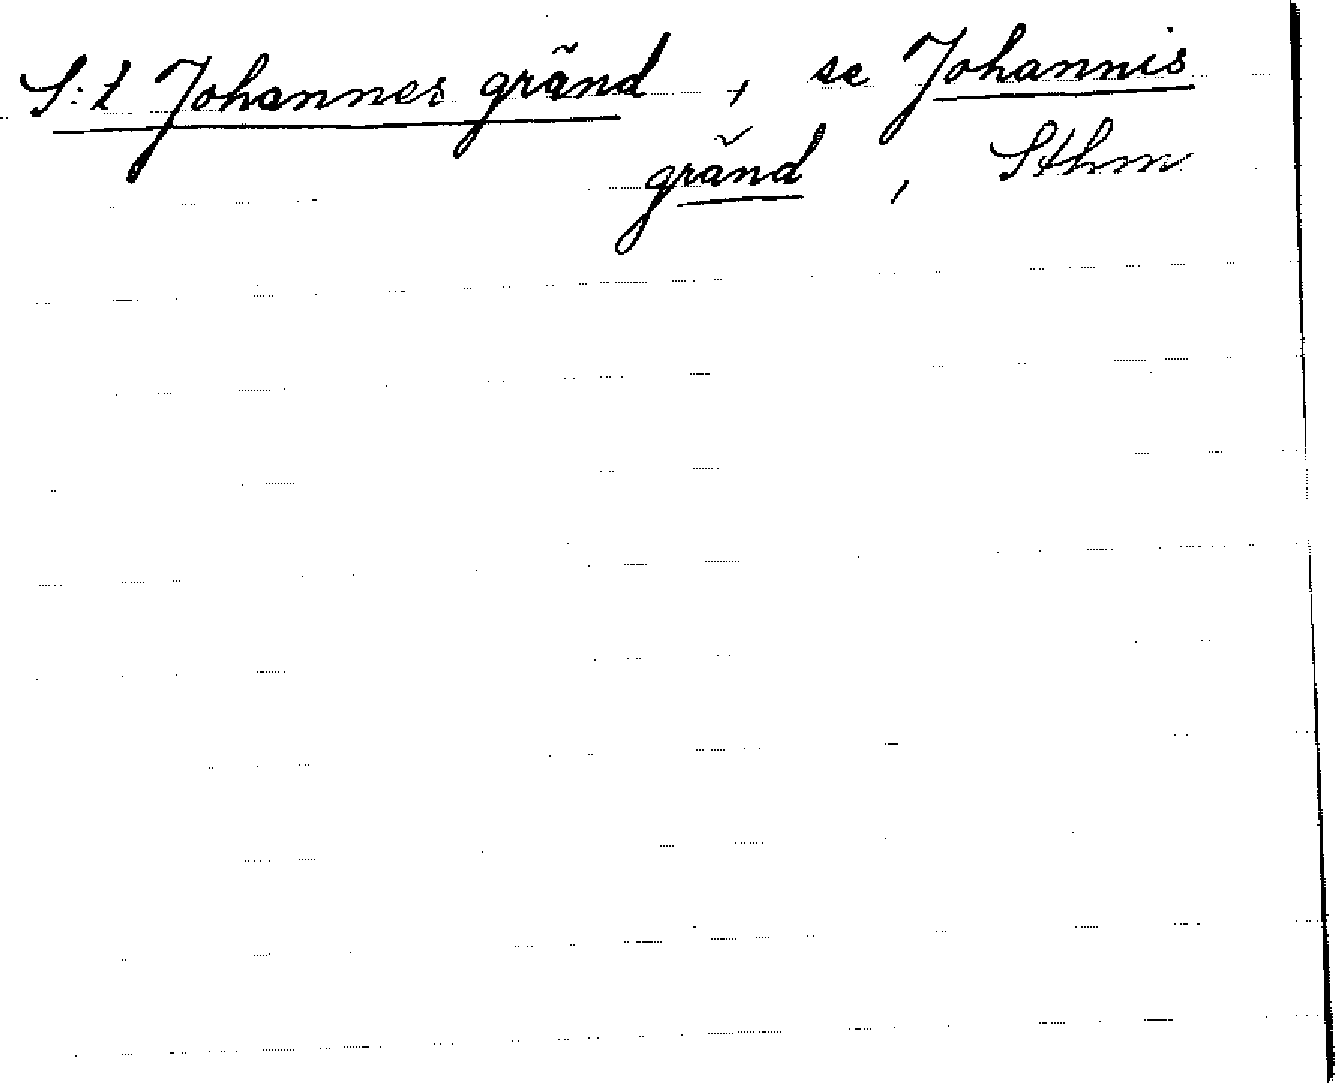 S:t Johannes gränd, se Johannis
gränd, Sthm